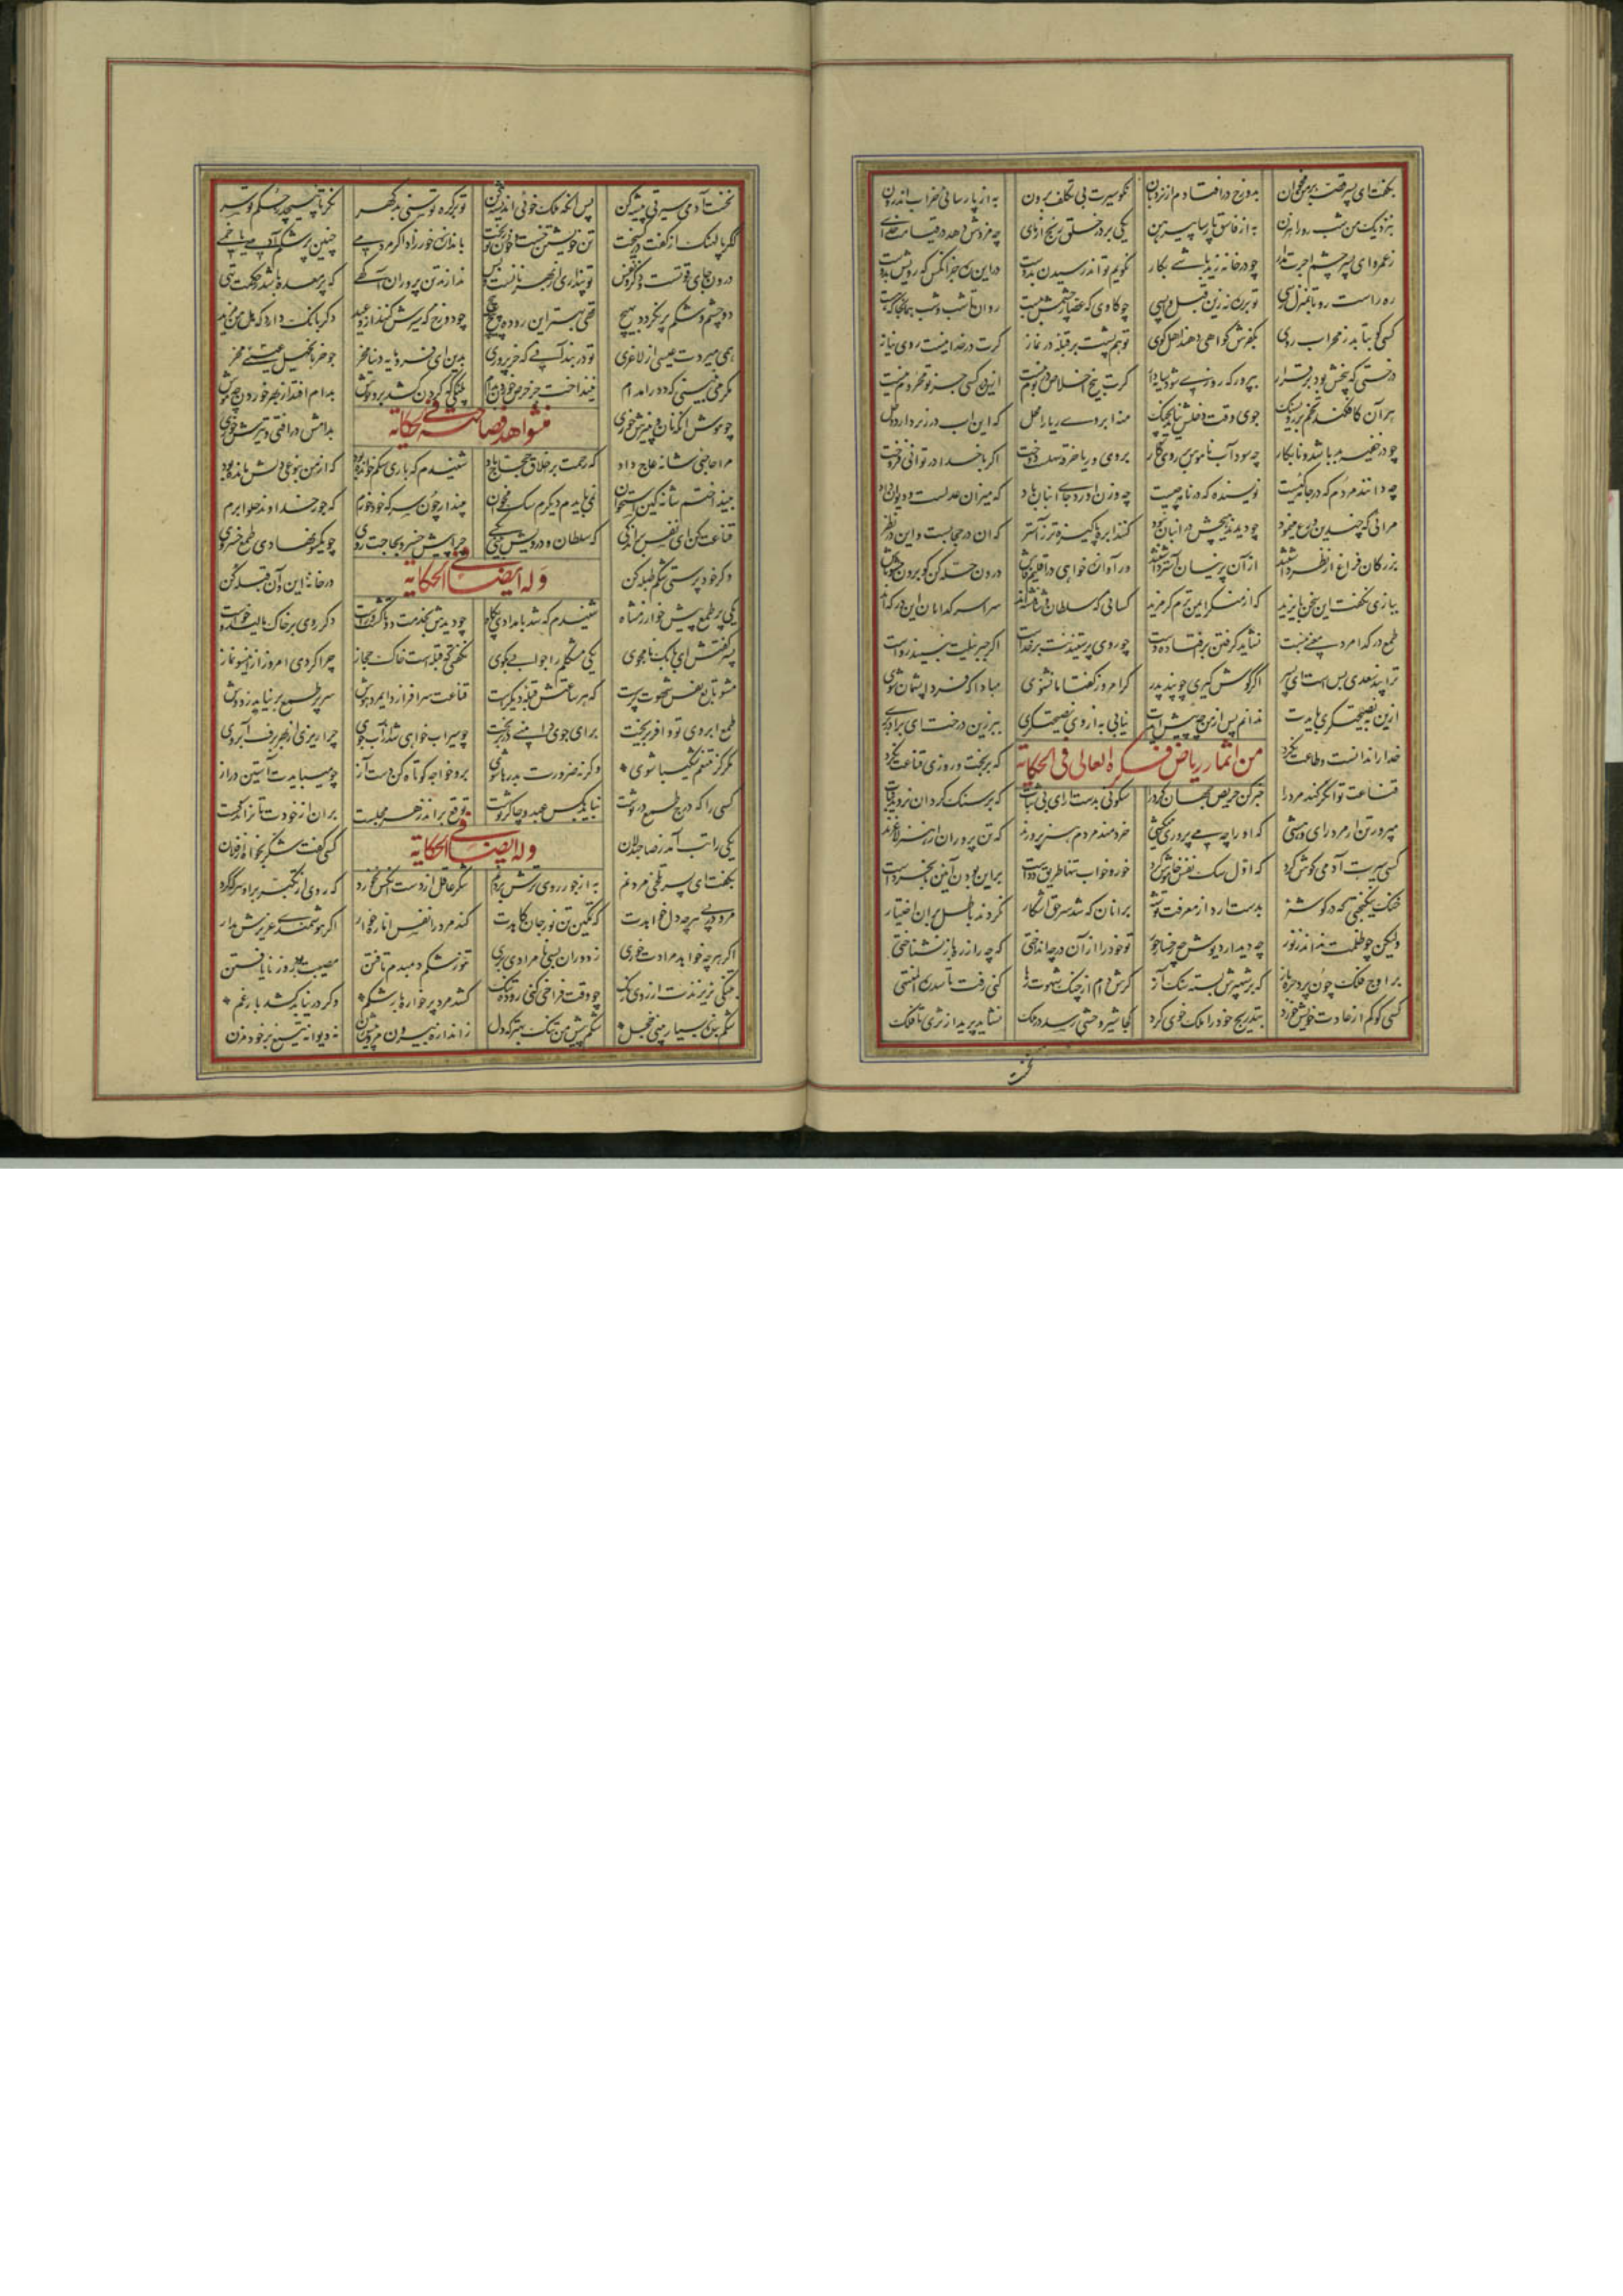 بگفت ای پسر قصه بر من مخوان بدوزخ در افتادم از نردبان نکو سیرت بی تکلف برون به از پارسائی خراب اندرون
بنزدیک من شب رو راهزن به از فاسق پارسا پیرهن یکی بر در خلق رنج آزمای چه مزدش دهد در قیامت خدای
ز عمرو ای پسر چشم اجرت مدار چو در خانه زید باشی بکار نگویم تواند رسیدن بدوست در این ره جز آنکس که رویش بدوست
ره راست رو تا بمنزل رسی تو بر ره نه زین قبل واپسی چو گاوی که عصار چشمش ببست روان تا شب و شب همانجا که هست
کسی کو بتابد ز محراب روی بکفرش گواهی دهند اهل کوی تو هم پشت بر قبله در نماز گرت در خدا نیست روی نیاز
درختی که بیخش بود برقرار بپرور که روزی شود گرت بیخ اخلاص در بوم نیست ازین در کسی چو تو محروم نیست
هر آن کافکند تخم بر روی سنگ جوی وقت دخلش نیاید بچنگ منه ابروی ریا را محل که این آب در زیر دارد وحل
چو در غیب بد باشد و نابکار چه سود آب ناموس بر روی کار بروی و ریا خرقه سهلست دوخت اگر با خدا در توانی فروخت
چه دانند مردم که در جامه کیست نویسنده که در نامه چیست چه وزن آورد جای انبان باد که میزان عدلست و دیوان داد
مرائی که چندین ورع مینمود چو دیدند هیچش در انبان نبود کنند ابره پاکیزه تر ز آستر که آن در حجابست و این در نظر
بزرگان فراغ از نظر داشتند از آن پرنیان آستر داشتند ور آوازه خواهی در اقلیم فاش درون حله کن گو برون حشو باش
ببازی نگفت این سخن بایزید که از منکر ایمن ترم کز مرید کسانی که سلطان و شاهنشهند سراسر گدایان این درگهند
طمع در گدا مرد معنی نبست نشاید گرفتن بر افتاده دست چو روی پرستیدنت بر خداست اگر جبرئیلت نبیند رواست
ترا پند سعدی بس است ای پسر اگر گوش گیری چو پند پدر گر امروز گفتار ما نشنوی مبادا که فردا پشیمان شوی
ازین به نصیحتگری بایدت ندانم پس از من چه پیش آیدت نیابی به از وی نصیحتگری ببر زین درخت ای برادر بری
خدا را ندانست و طاعت نکرد که بر بخت و روزی قناعت نکرد
من اثمار ریاض فکره العالی فی الحکایة
قناعت توانگر کند مرد را خبر کن حریص جهان گرد را سکونی بدست آر ای بی ثبات که بر سنگ گردان نروید نبات
مپرور تن ار مرد رای و هشی که او را چو می پروری میکشی خردمند مردم هنر پرورند که تن پروران از هنر لاغرند
کسی سیرت آدمی گوش کرد که اول سگ نفس خاموش کرد خور و خواب تنها طریق ددست بر این بودن آئین نابخردست
خنک نیکبختی که در گوشه بدست آرد از معرفت توشه بر آنان که شد سر حق آشکار نکردند باطل بر آن اختیار
ولیکن چو ظلمت نداند ز نور چه دیدار دیوش چه رخسار حور تو خود را از آن در چه انداختی که چه را ز ره باز نشناختی
بر اوج فلک چون پرد جره باز که بر شهپرش بسته سنگ آز گرش دامن از چنگ شهوت رها کنی رفت تا سدرة المنتهی
کسی کو کم از عادت خویش خورد بتدریج خود را ملک خوی کرد کجا شیر وحشی رسد در ملک نشاید پرید از ثری تا فلک
نخست
نخست آدمی سیرتی پیشه کن پس آنگه ملک خوئی اندیشه کن تو بر کره توسنی بر کمر نگر تا نپیچد ز حکم تو سر
که گر پالهنگ از کفت در گسیخت تن خویشتن کشت و خون تو ریخت باندازه خور زاد اگر مردمی چنین پر شکم آدمی یا خمی
درون جای قوتست و ذکر و نفس تو پنداری از بهر نانست و بس ندارند تن پروران آگهی که پر معده باشد ز حکمت تهی
دو چشم و شکم پر نگردد بهیچ تهی بهتر این روده پیچ پیچ چو دوزخ که سیرش کنند از وقید دگر بانگ دارد که هل من مزید
همی میردت عیسی از لاغری تو در بند آنی که خر پروری بدین ای فرومایه دنیا مخر جو خر بانجیل عیسی مخر
مگر می نبینی که دد را و دام نینداخت جز حرص خوردن بدام پلنگی که گردن کشد بر وحوش بدام افتد از بهر خوردن چو موش
چو موش آنکه نان و پنیرش خوری بدامش در افتی و تیرش خوری
من شواهد فصاحته فی الحکایة
مرا حاجئی شانه عاج داد که رحمت بر اخلاق حجاج باد شنیدم که باری سگم خوانده بود که از من بنوعی دلش مانده بود
بینداختم شانه کین استخوان نمی بایدم دیگرم سگ مخوان مپندار چون سرکه خود خورم که جور خداوند حلوا برم
قناعت کن ای نفس بر اندکی که سلطان و درویش بینی یکی چرا پیش خسرو بحاجت روی چو یکسو نهادی طمع خسروی
وگر خود پرستی شکم طبله کن در خانه این و آن قبله کن
وله ایضا فی الحکایة
یکی پر طمع پیش خوارزمشاه شنیدم که شد بامدادی پگاه چو دیدش بخدمت دوتا گشت و راست دگر روی بر خاک مالید و خاست
پسر گفتش ای بابک نامجوی یکی مشکلم را جوابی بگوی نگفتی که قبله است خاک حجاز چرا کردی امروز ازین سو نماز
مشو تابع نفس شهوت پرست که هر ساعتش قبله دیگرست قناعت سر افرازد ای مرد هوش سر پر طمع بر نیاید ز دوش
طمع آبروی توقر بریخت برای جوی دامنی در بریخت چو سیراب خواهی شدن ز آب جوی چرا ریزی از بهر برف آبروی
مگر کز تنعم شکیبا شوی وگرنه ضرورت بدرها شوی برو خواجه کوتاه کن دست آز چه میبایدت آستین دراز
کسی را که درج طمع در نوشت نباید بکس عبد و چاکر نوشت توقع براند ز هر مجلست بران از خودت تا نراند کست
وله ایضا فی الحکایة
یکی را تب آمد ز صاحبدلان کسی گفت شکر بخواه از فلان
بگفت ای پسر تلخی مردنم به از جور روی ترش بردنم شکر عاقل از دست آنکس نخورد که روی از تکبر بر او سرکه کرد
مرو در پی هر چه دل خواهدت که تمکین تن نور جان کاهدت کند مرد را نفس اماره خوار اگر هوشمندی عزیزش مدار
اگر هر چه خواهد مرادت خوری ز دوران بسی نامرادی بری تنور شکم دمبدم تافتن مصیبت بود روز نایافتن
بتنگی بریزاندت روی رنگ چو وقت فراخی کنی روده تنگ کشد مرد پرخواره بار شکم وگر در نیابد کشد بار غم
شکم بنده بسیار بینی خجل شکم پیش من تنگ بهتر که دل ز اندازه بیرون مرو پیش زن نه دیوانه تیغ بر خود مزن